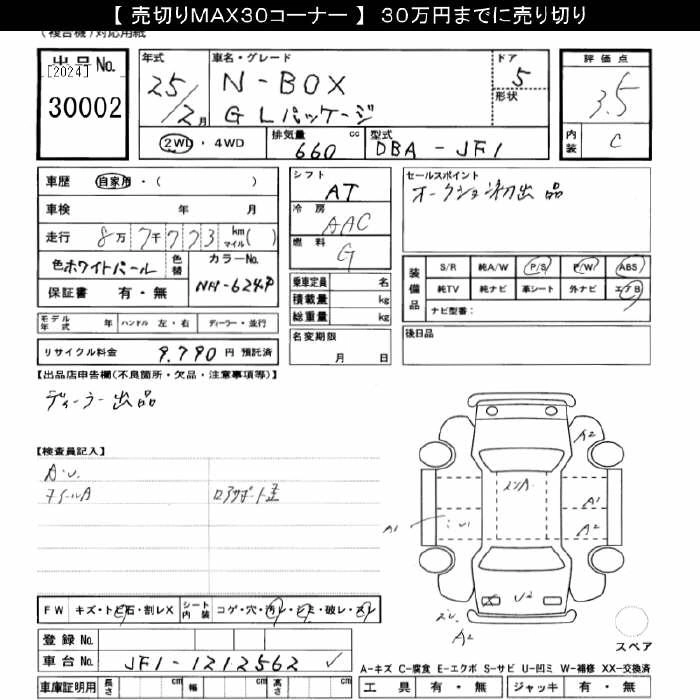 【 売切りMAX30コーナー 】 30万円までに売り切り
(複合機)対応用紙
出品 No.
[2024]
30002
年式
25/2月
車名・グレード
N-BOX
G Lパッケージ
ドア
5
形状
評価点
3.5
内装
C
2WD ・ 4WD
排気量 660 cc
型式 DBA - JF1
車歴 自家用・( )
車検 年 月
走行 8万7千773 km マイル( )
色 ホワイトパール
色替
カラーNo.
NH-624P
保証書 有・無
シフト
AT
冷房
AAC
燃料
G
乗車定員 名
積載量 kg
総重量 kg
名変期限
月 日
セールスポイント
オークション初出品
装備品
S/R 純A/W P/S P/W ABS
純TV 純ナビ 革シート 外ナビ エアB
ナビ型番：
後日品
モデル年式 年 ハンドル 左・右 ディーラー・並行
リサイクル料金 9.790 円 預託済
【出品店申告欄(不良箇所・欠品・注意事項等)】
ディーラー出品
【検査員記入】
A.U.
ホイールA
ロアサポート歪
A2
A1
A2
A1
U2
A2
FW キズ・トビ石・割レX
シート内装 コゲ・穴・汚レ・シミ・破レ・スレ
登録 No.
車台 No. JF1-1212562 ✓
車庫証明用 長さ cm 幅 cm 高さ cm
スペア
A−キズ C−腐食 E−エクボ S−サビ U−凹ミ W−補修 XX−交換済
工具 有・無 ジャッキ 有・無